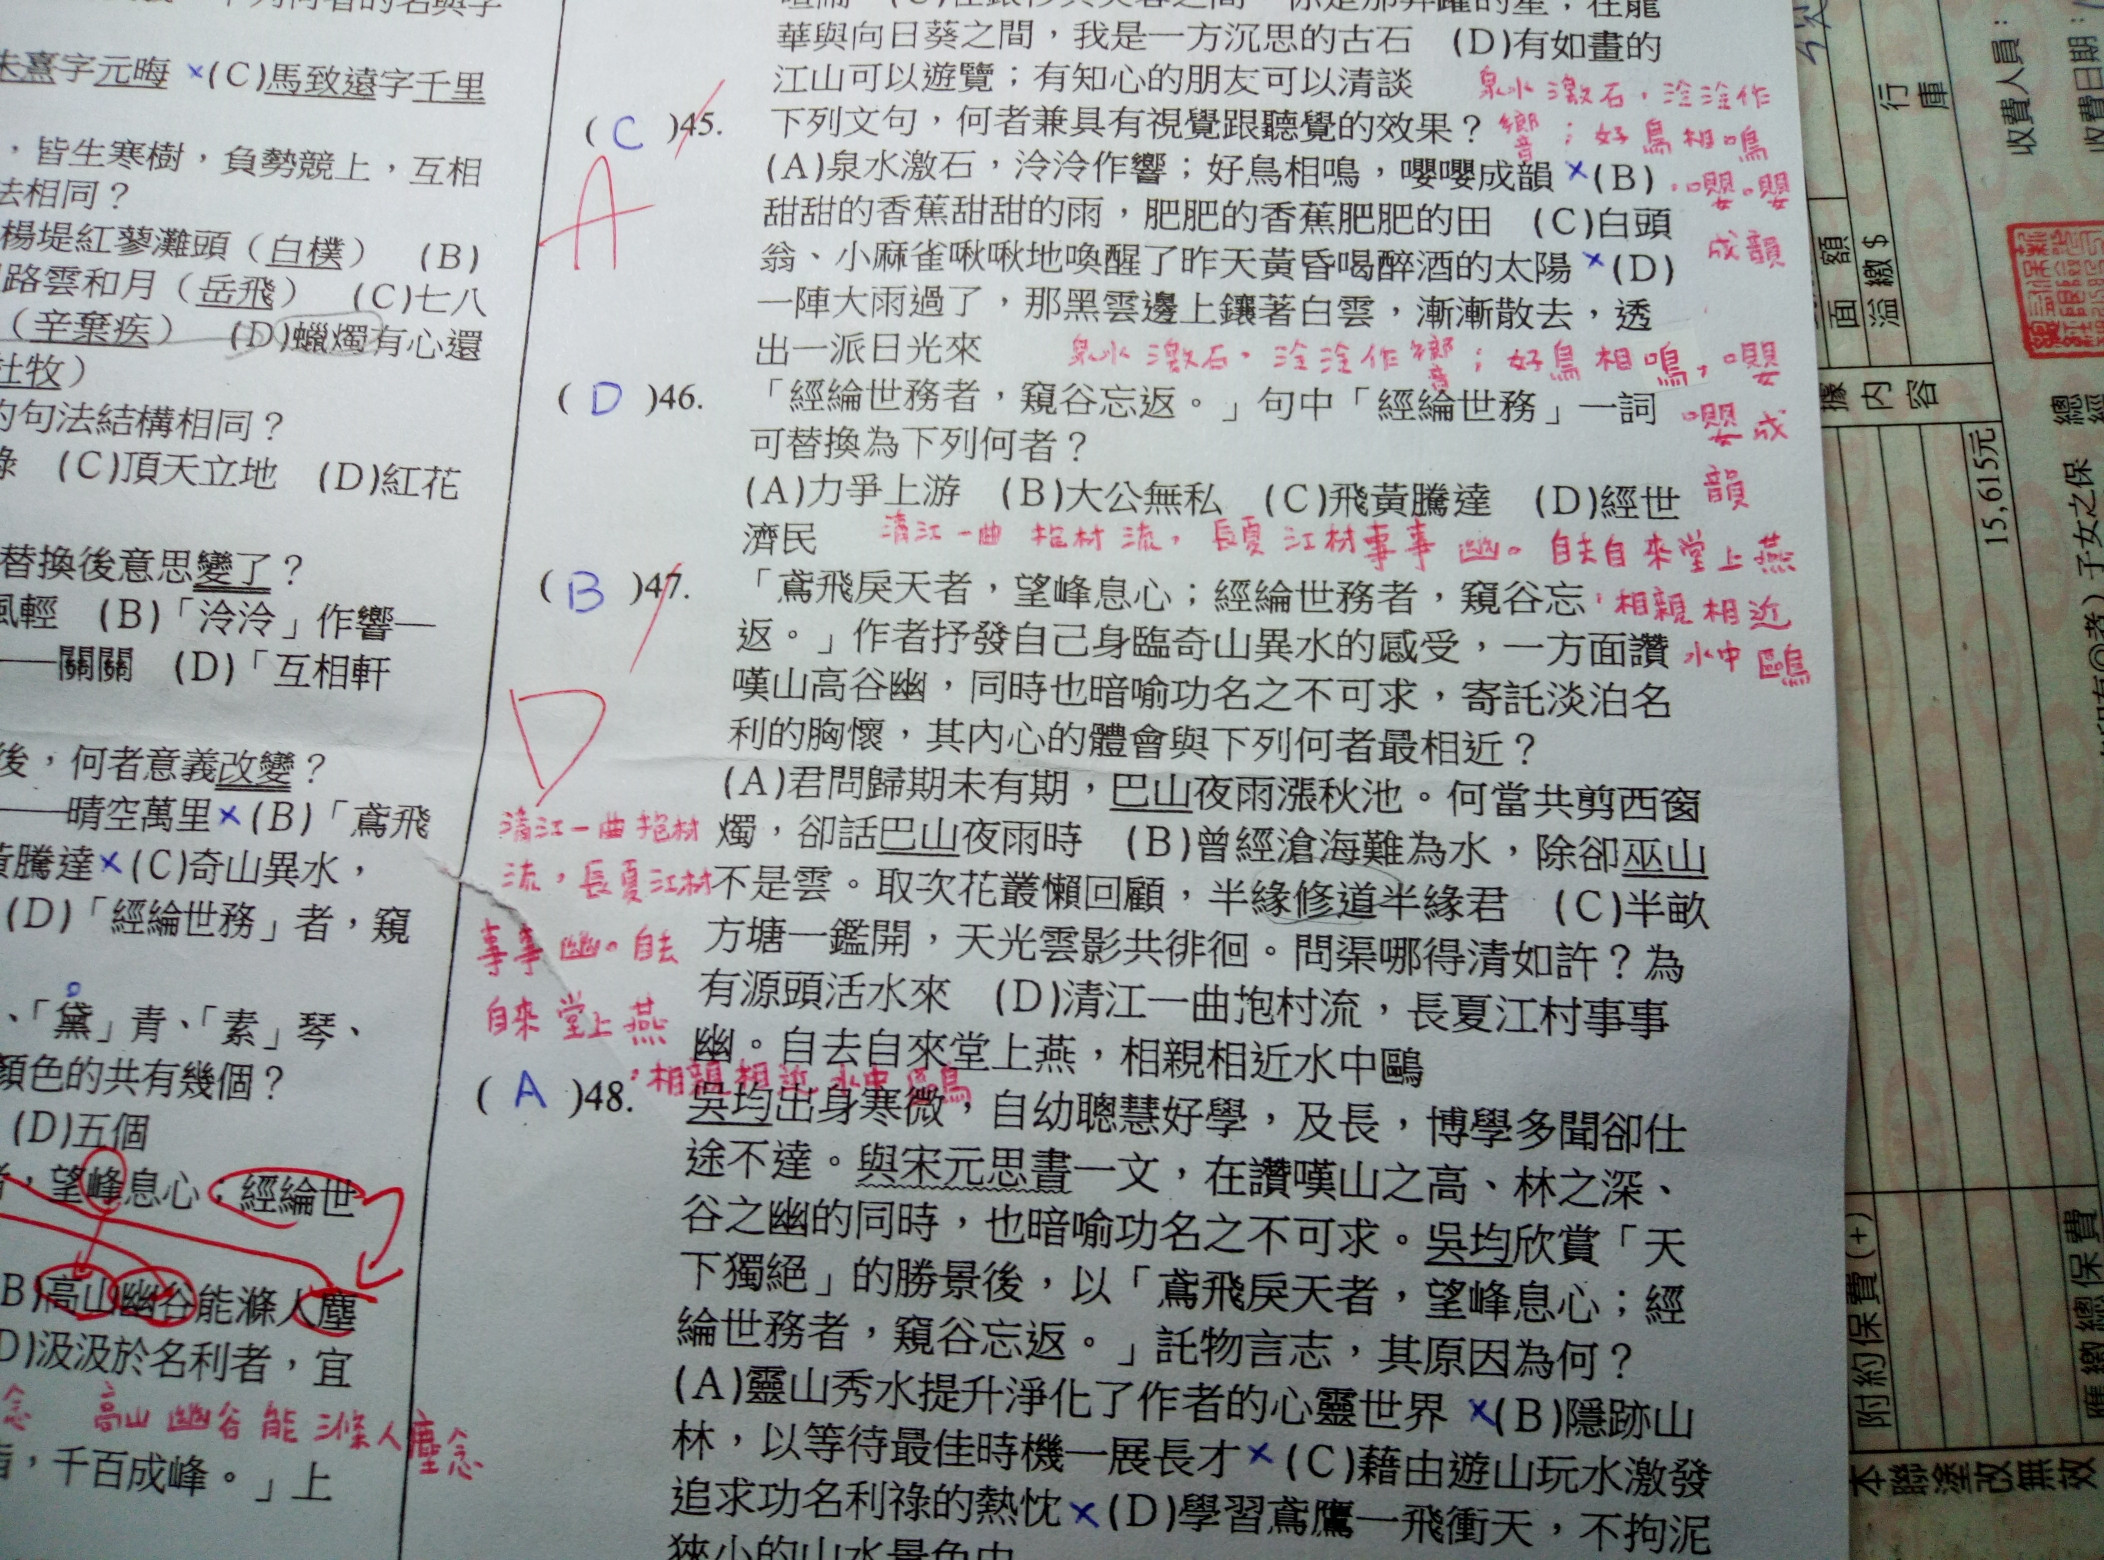 朱熹字元晦 ×(C)馬致遠字千里
，皆生寒樹，負勢競上，互相
法相同？
楊堤紅蓼灘頭（白樸） (B)
路雲和月（岳飛） (C)七八
（辛棄疾） (D)蠟燭有心還
杜牧）
的句法結構相同？
(C)頂天立地 (D)紅花
替換後意思變了？
風輕 (B)「泠泠」作響—
——關關 (D)「互相軒
後，何者意義改變？
——晴空萬里×(B)「鳶飛
黃騰達×(C)奇山異水，
(D)「經綸世務」者，窺
、「黛」青、「素」琴、
顏色的共有幾個？
(D)五個
，望峰息心；經綸世
B)高山幽谷能滌人塵
D)汲汲於名利者，宜
念 高山幽谷能滌人塵念
，千百成峰。」上
華與向日葵之間，我是一方沉思的古石 (D)有如畫的
江山可以遊覽；有知心的朋友可以清談
泉水激石，泠泠作
響；好鳥相鳴
，嚶嚶
成韻
( C )45. 下列文句，何者兼具有視覺跟聽覺的效果？
A
(A)泉水激石，泠泠作響；好鳥相鳴，嚶嚶成韻 ×(B)
甜甜的香蕉甜甜的雨，肥肥的香蕉肥肥的田 (C)白頭
翁、小麻雀啾啾地喚醒了昨天黃昏喝醉酒的太陽 ×(D)
一陣大雨過了，那黑雲邊上鑲著白雲，漸漸散去，透
出一派日光來
泉水激石，泠泠作響；好鳥相鳴，嚶
嚶成
韻
( D )46. 「經綸世務者，窺谷忘返。」句中「經綸世務」一詞
可替換為下列何者？
(A)力爭上游 (B)大公無私 (C)飛黃騰達 (D)經世
濟民
清江一曲抱村流，長夏江村事事幽。自去自來堂上燕
，相親相近
水中鷗
( B )47. 「鳶飛戾天者，望峰息心；經綸世務者，窺谷忘
返。」作者抒發自己身臨奇山異水的感受，一方面讚
嘆山高谷幽，同時也暗喻功名之不可求，寄託淡泊名
利的胸懷，其內心的體會與下列何者最相近？
D
(A)君問歸期未有期，巴山夜雨漲秋池。何當共剪西窗
燭，卻話巴山夜雨時 (B)曾經滄海難為水，除卻巫山
不是雲。取次花叢懶回顧，半緣修道半緣君 (C)半畝
方塘一鑑開，天光雲影共徘徊。問渠哪得清如許？為
有源頭活水來 (D)清江一曲抱村流，長夏江村事事
幽。自去自來堂上燕，相親相近水中鷗
清江一曲抱村
流，長夏江村
事事幽。自去
自來堂上燕
，相親相近水中鷗
( A )48. 吳均出身寒微，自幼聰慧好學，及長，博學多聞卻仕
途不達。與宋元思書一文，在讚嘆山之高、林之深、
谷之幽的同時，也暗喻功名之不可求。吳均欣賞「天
下獨絕」的勝景後，以「鳶飛戾天者，望峰息心；經
綸世務者，窺谷忘返。」託物言志，其原因為何？
(A)靈山秀水提升淨化了作者的心靈世界 ×(B)隱跡山
林，以等待最佳時機一展長才×(C)藉由遊山玩水激發
追求功名利祿的熱忱×(D)學習鳶鷹一飛衝天，不拘泥
狹小的山水景色中
行庫
收費人員：
收費日期：
面額
溢繳$
據內容
15,615元
總經
子女之保
附約保費(+)
應繳總保費
本聯塗改無效